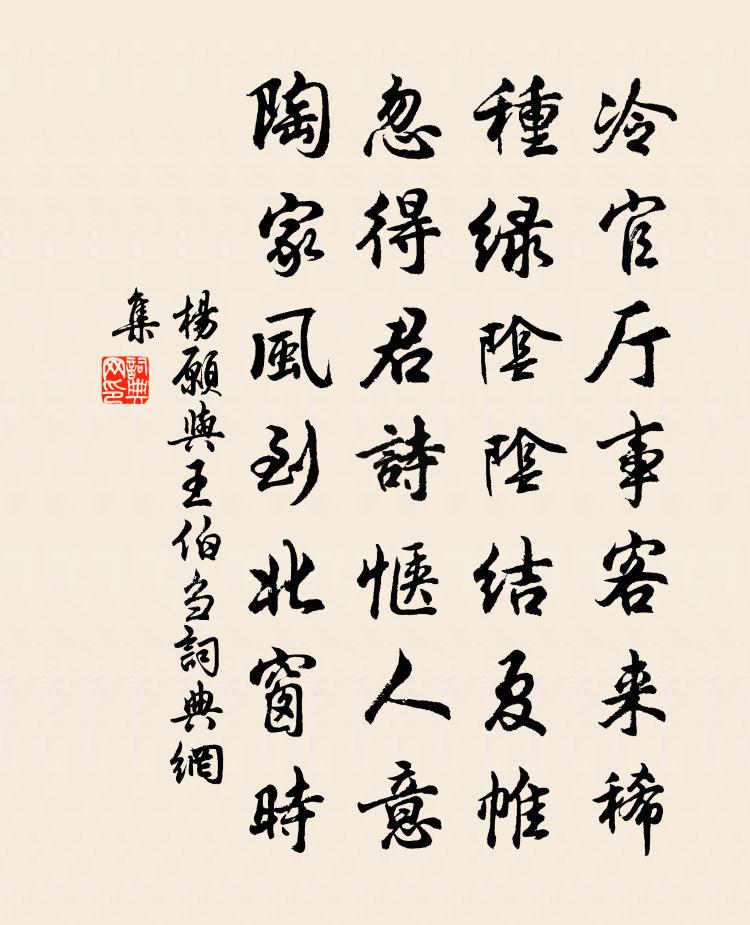 冷官厅事客来稀
種绿陰陰结夏帷
忽得君詩愜人意
陶家風到北窗時
楊願與王伯刍詞典網
集
詞典网印